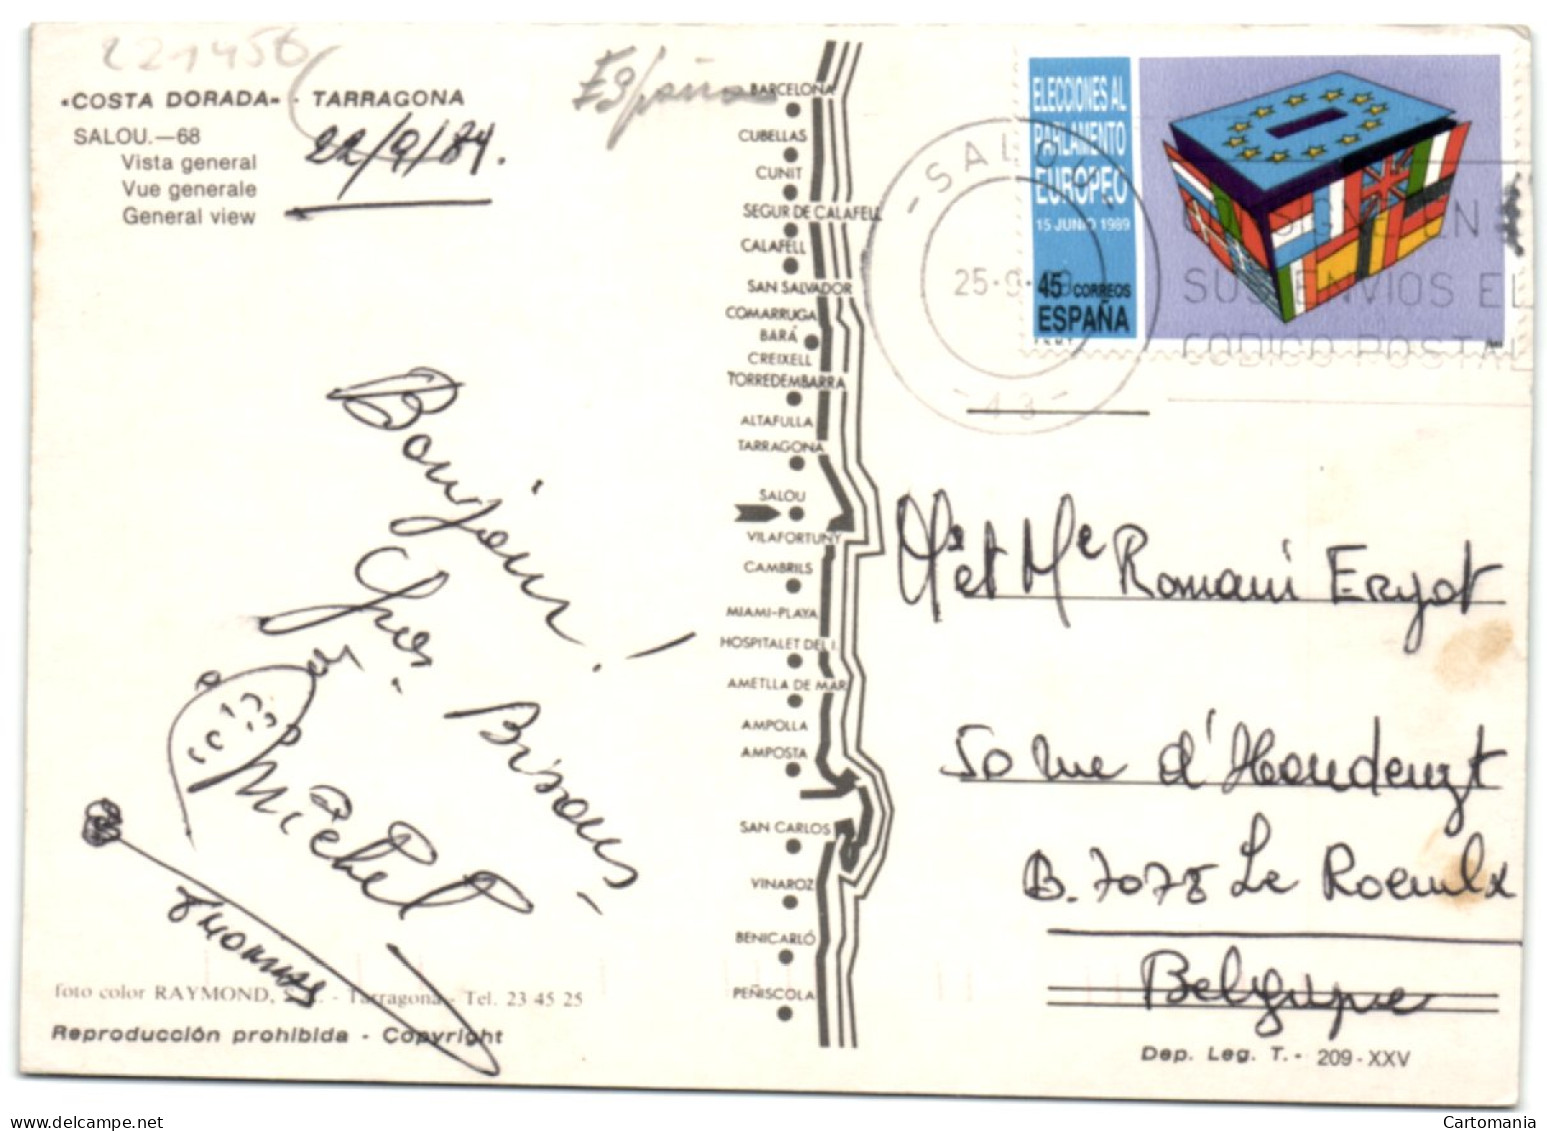 221456
España
«COSTA DORADA» - TARRAGONA
SALOU.—68
Vista general
Vue generale
General view
22/9/89.
Bonjour !
Gros Bisous
Michel
THOMAS
foto color RAYMOND, - Tarragona - Tel. 23 45 25
Reproducción prohibida - Copyright
BARCELONA
CUBELLAS
CUNIT
SEGUR DE CALAFELL
CALAFELL
SAN SALVADOR
COMARRUGA
BARÁ
CREIXELL
TORREDEMBARRA
ALTAFULLA
TARRAGONA
SALOU
VILAFORTUNY
CAMBRILS
MIAMI-PLAYA
HOSPITALET DEL I.
AMETLLA DE MAR
AMPOLLA
AMPOSTA
SAN CARLOS
VINAROZ
BENICARLÓ
PEÑISCOLA
ELECCIONES AL
PARLAMENTO
EUROPEO
15 JUNIO 1989
45 CORREOS
ESPAÑA
F.N.M.T.
- SALOU -
25-9-89
- 43 -
CONSIGNE EN
SUS ENVIOS EL
CODIGO POSTAL
Mr et Me Romani Ergot
50 rue d'Houdengt
B. 7078 Le Roeulx
Belgique
Dep. Leg. T. - 209-XXV
Cartomania